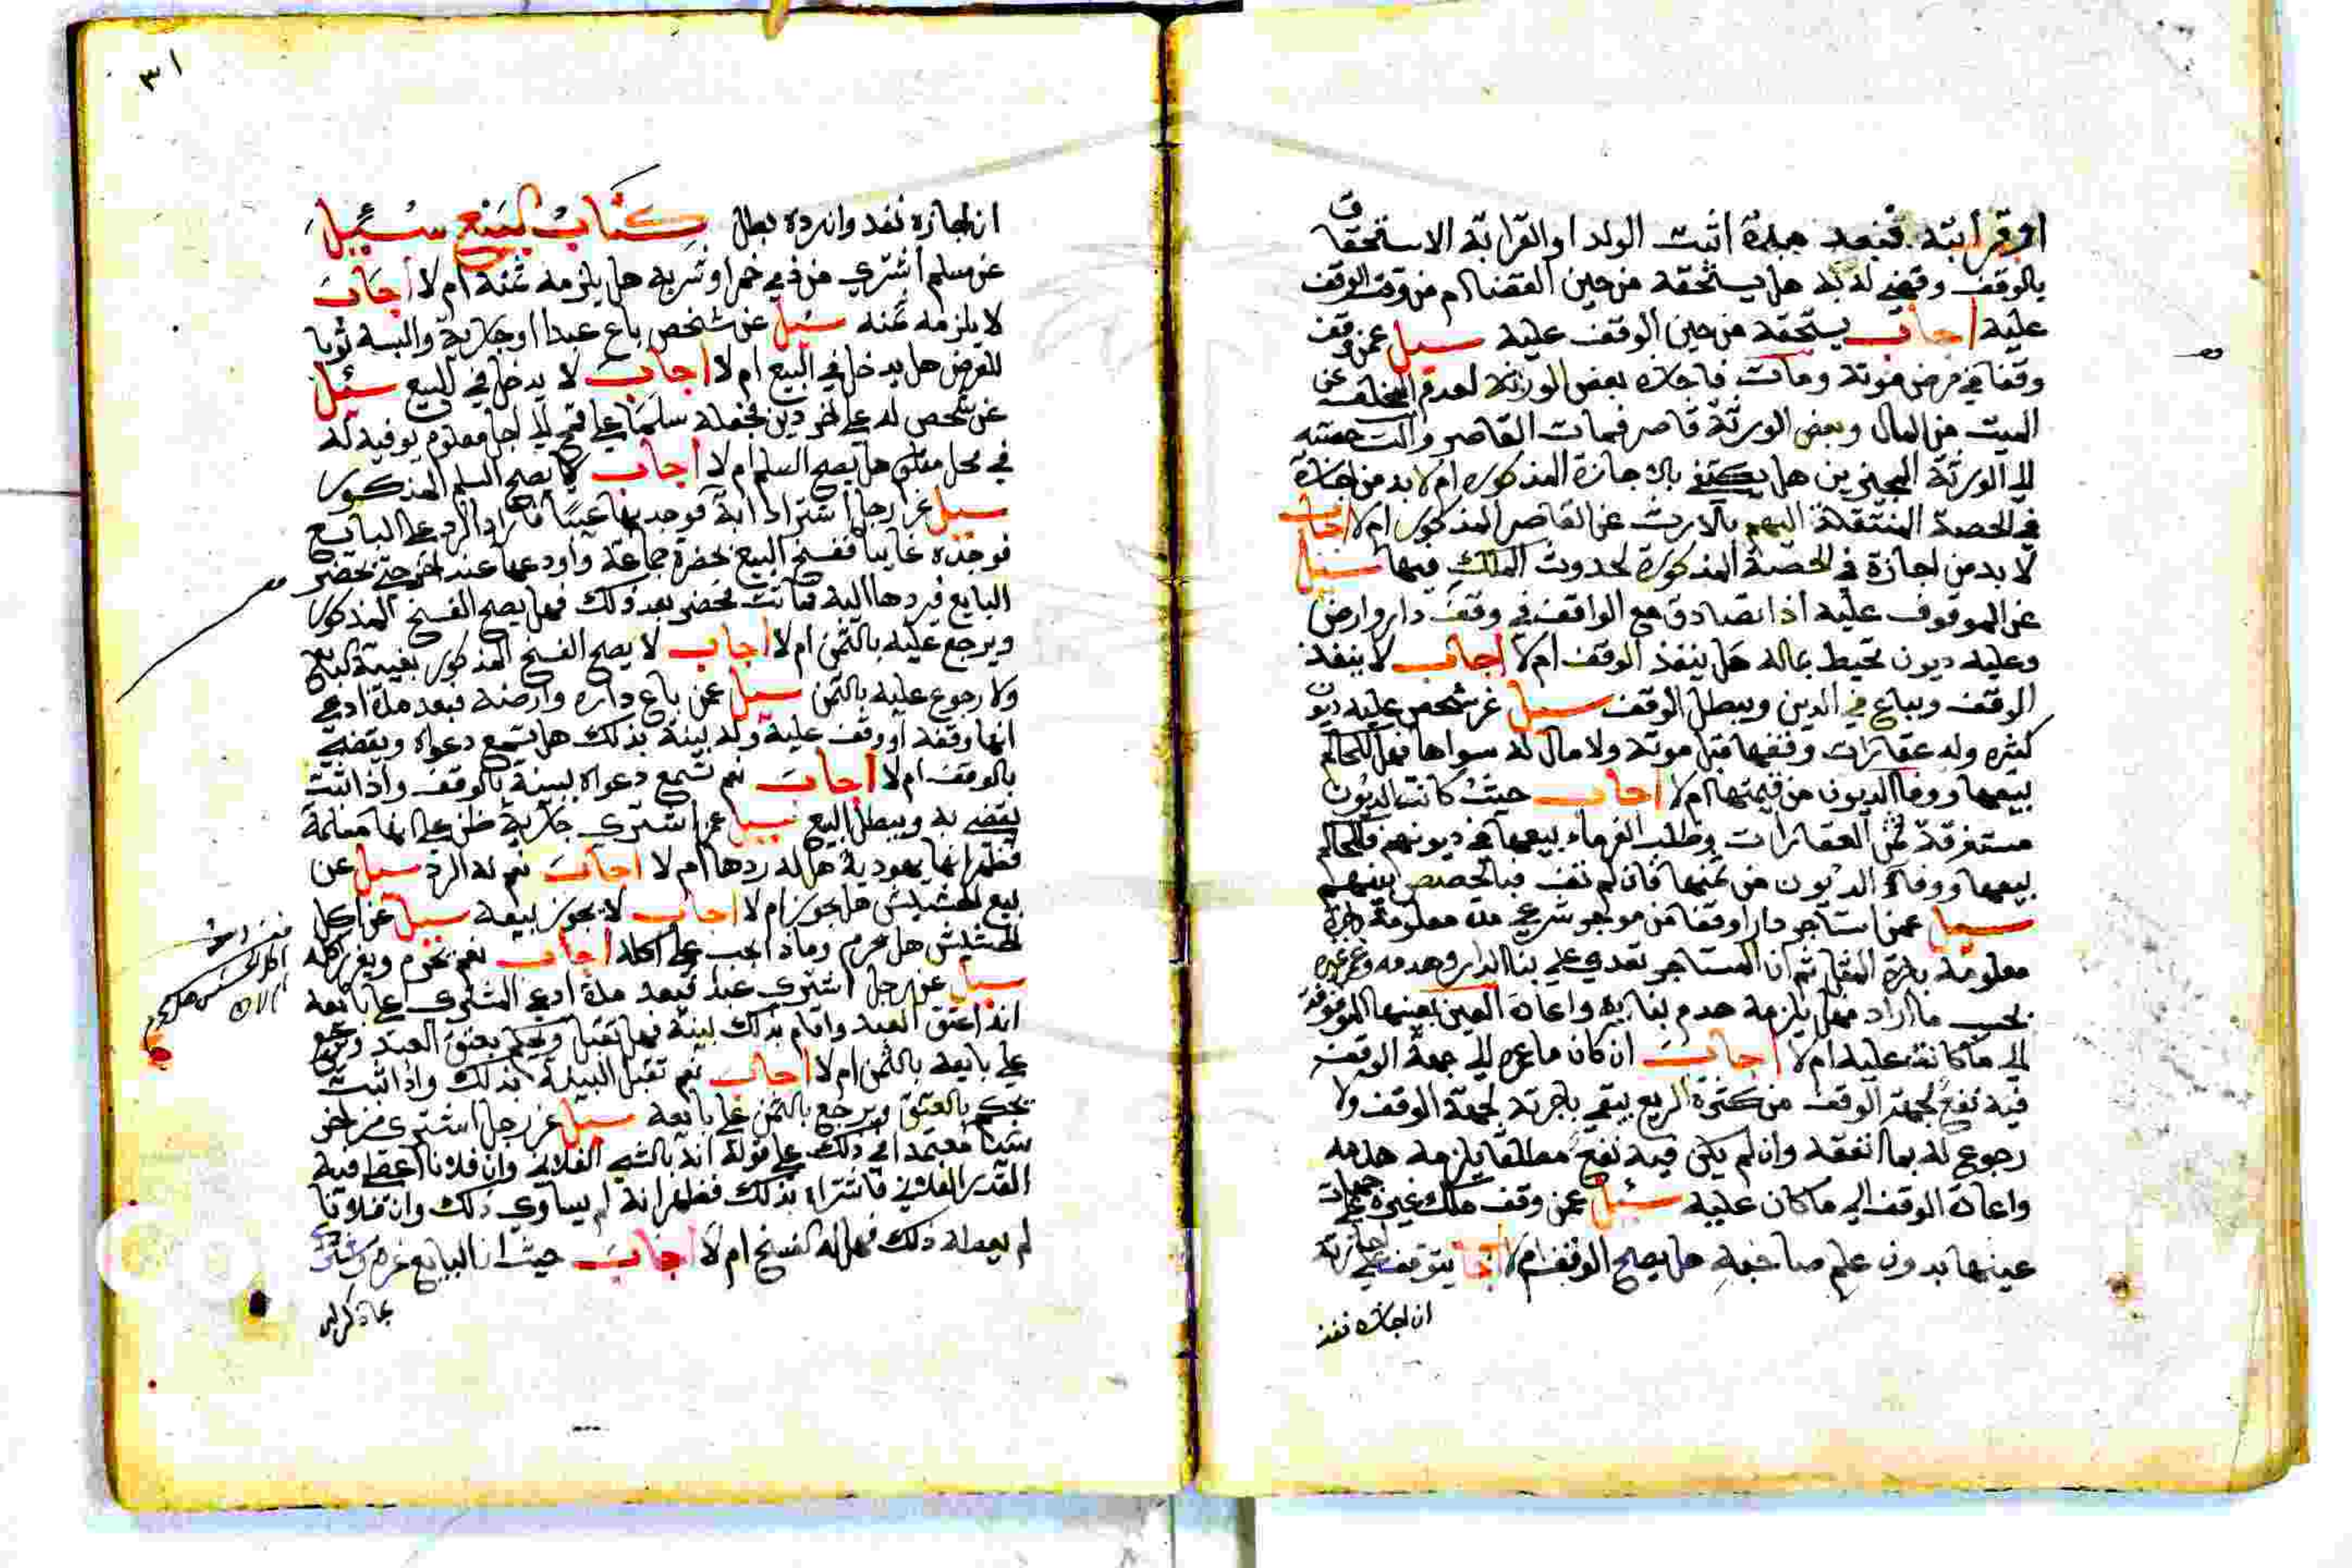 او قرابته فبعد مدة اثبت الولد او القرابة الاستحقاق
بالوقف وقضي له به هل يستحقه من حين القضا ام من وقت الوقف
عليه اجاب يستحقه من حين الوقف عليه سيل عمن وقف
وقفا في مرض موته ومات فاجازه بعض الورثة لعدم المخلف عن
الميت من المال وبعض الورثة قاصر فمات القاصر والت حصته
الى الورثة المجيزين هل يكتفي بالاجازة المذكورة ام لا بد من اجازة
في الحصة المنتقلة اليهم بالارث عن القاصر المذكور ام لا اجاب
لا بد من اجازة في الحصة المذكورة لحدوث الملك فيها سيل
عن الموقوف عليه اذا تصادق مع الواقف في وقف دار وارض
وعليه ديون تحيط بماله هل ينفذ الوقف ام لا اجاب لا ينفذ
الوقف ويباع في الدين ويبطل الوقف سيل عن شخص عليه ديون
كثيره وله عقارات وقفها قبل موته ولا مال له سواها فهل للحاكم
بيعها ووفا الديون من قيمتها ام لا اجاب حيث كانت الديون
مستغرقة ثمن العقارات وطلب الغرماء بيعها في ديونهم فللحاكم
بيعها ووفاء الديون من ثمنها فان لم تف فبالحصص بينهم
سيل عمن استاجر دارا وقفا من موجر شرعي مدة معلومة باجرة
معلومة باجرة المثل ثم ان المستاجر تعدي على بنا الدار وهدمه وعمر غيره
بحسب ما اراد فهل يلزمه هدم بنايه واعادة العين بعينها الموقوفة
الى ما كانت عليه ام لا اجاب ان كان ما عمره الى جهة الوقف
فيه نفع لجهة الوقف من كثرة الريع يبقي باجرته لجهة الوقف ولا
رجوع له بما انفقه وان لم يكن فيه نفع مطلقا يلزمه هدمه
واعادة الوقف الى ما كان عليه سيل عمن وقف ملك غيره على جهات
عينها بدون علم صاحبه هل يصح الوقف ام لا اجاب يتوقف على اجازته
ان اجازه نفذ
٣١
ان اجازه نفد وان رده بطل كتاب البيع سئيل
عن مسلم اشتري من ذمي خمرا وشربه هل يلزمه ثمنه ام لا اجاب
لا يلزمه ثمنه سيل عن شخص باع عبدا او جارية والبسه ثوبا
للعرض هل يدخل في البيع ام لا اجاب لا يدخل في البيع سيل
عن شخص له على اخر دين فجعله سلما على قمح الى اجل معلوم يوفيه له
في محل معلوم هل يصح السلم ام لا اجاب لا يصح السلم المذكور
سيل عن رجل اشترا دابة فوجد بها عيبا فاراد الرد على البائع
فوجده غايبا ففسخ البيع بحضرة جماعة واودعها عند اخر حتى يحضر
البايع فيردها اليه فماتت فحضر بعد ذلك فهل يصح الفسخ المذكور
ويرجع عليه بالثمن ام لا اجاب لا يصح الفسخ المذكور بغيبة البايع
ولا رجوع عليه بالثمن سيل عمن باع داره وارضه فبعد مدة ادعي
انها وقفه او وقف عليه وله بينة بذلك هل تسمع دعواه ويقضي
بالوقف ام لا اجاب نعم تسمع دعواه ببينة بالوقف واذا اثبت
يقضي به ويبطل البيع سيل عمن اشتري جارية ظن على انها مسلمة
فظهر انها يهودية هل له ردها ام لا اجاب نعم له الرد سيل عن
بيع الحشيش هل يجوز ام لا اجاب لا يجوز بيعه سيل عن اكل
الحشيش هل يحرم وماذا يجب على اكله اجاب نعم يحرم ويعزر اكله
سيل عن رجل اشتري عبدا فبعد مدة ادعي المشتري على بايعه
انه اعتق العبد واقام بذلك بينة فهل تقبل ويحكم بعتق العبد ويرجع
على بايعه بالثمن ام لا اجاب نعم تقبل البينة بذلك واذا ثبت
يحكم بالعتق ويرجع بالثمن على بايعه سيل عن رجل اشتري من اخر
شيا معتمدا في ذلك على قوله انه بالشي الفلاني وان فلانا اعطي فيه
القدر الفلاني فاشتراه بذلك فظهر انه لم يساوي ذلك وان فلانا
لم يعطه ذلك فهل له الفسخ ام لا اجاب حيث ان البايع غره
بما ذكر له
اكل الحشيش هل يحرم
ام لا